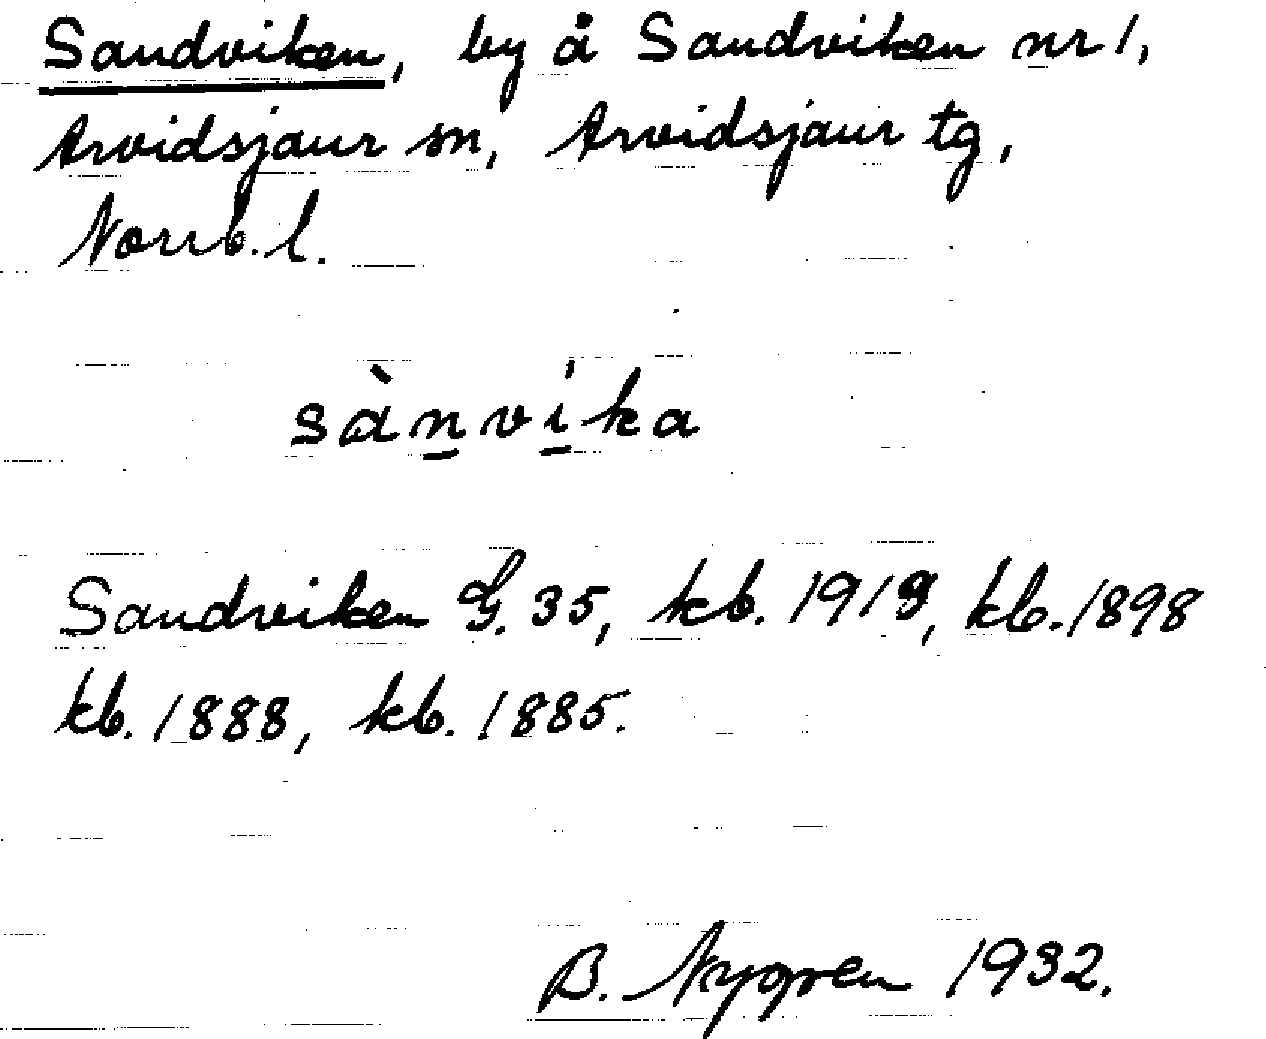 Sandviken, by å Sandviken nr 1,
Arvidsjaur sn, Arvidsjaur tg,
Norrb. l.
sàn̠vi̠ka
Sandviken G. 35, kb. 1919, kb. 1898
kb. 1888, kb. 1885.
B. Nygren 1932.